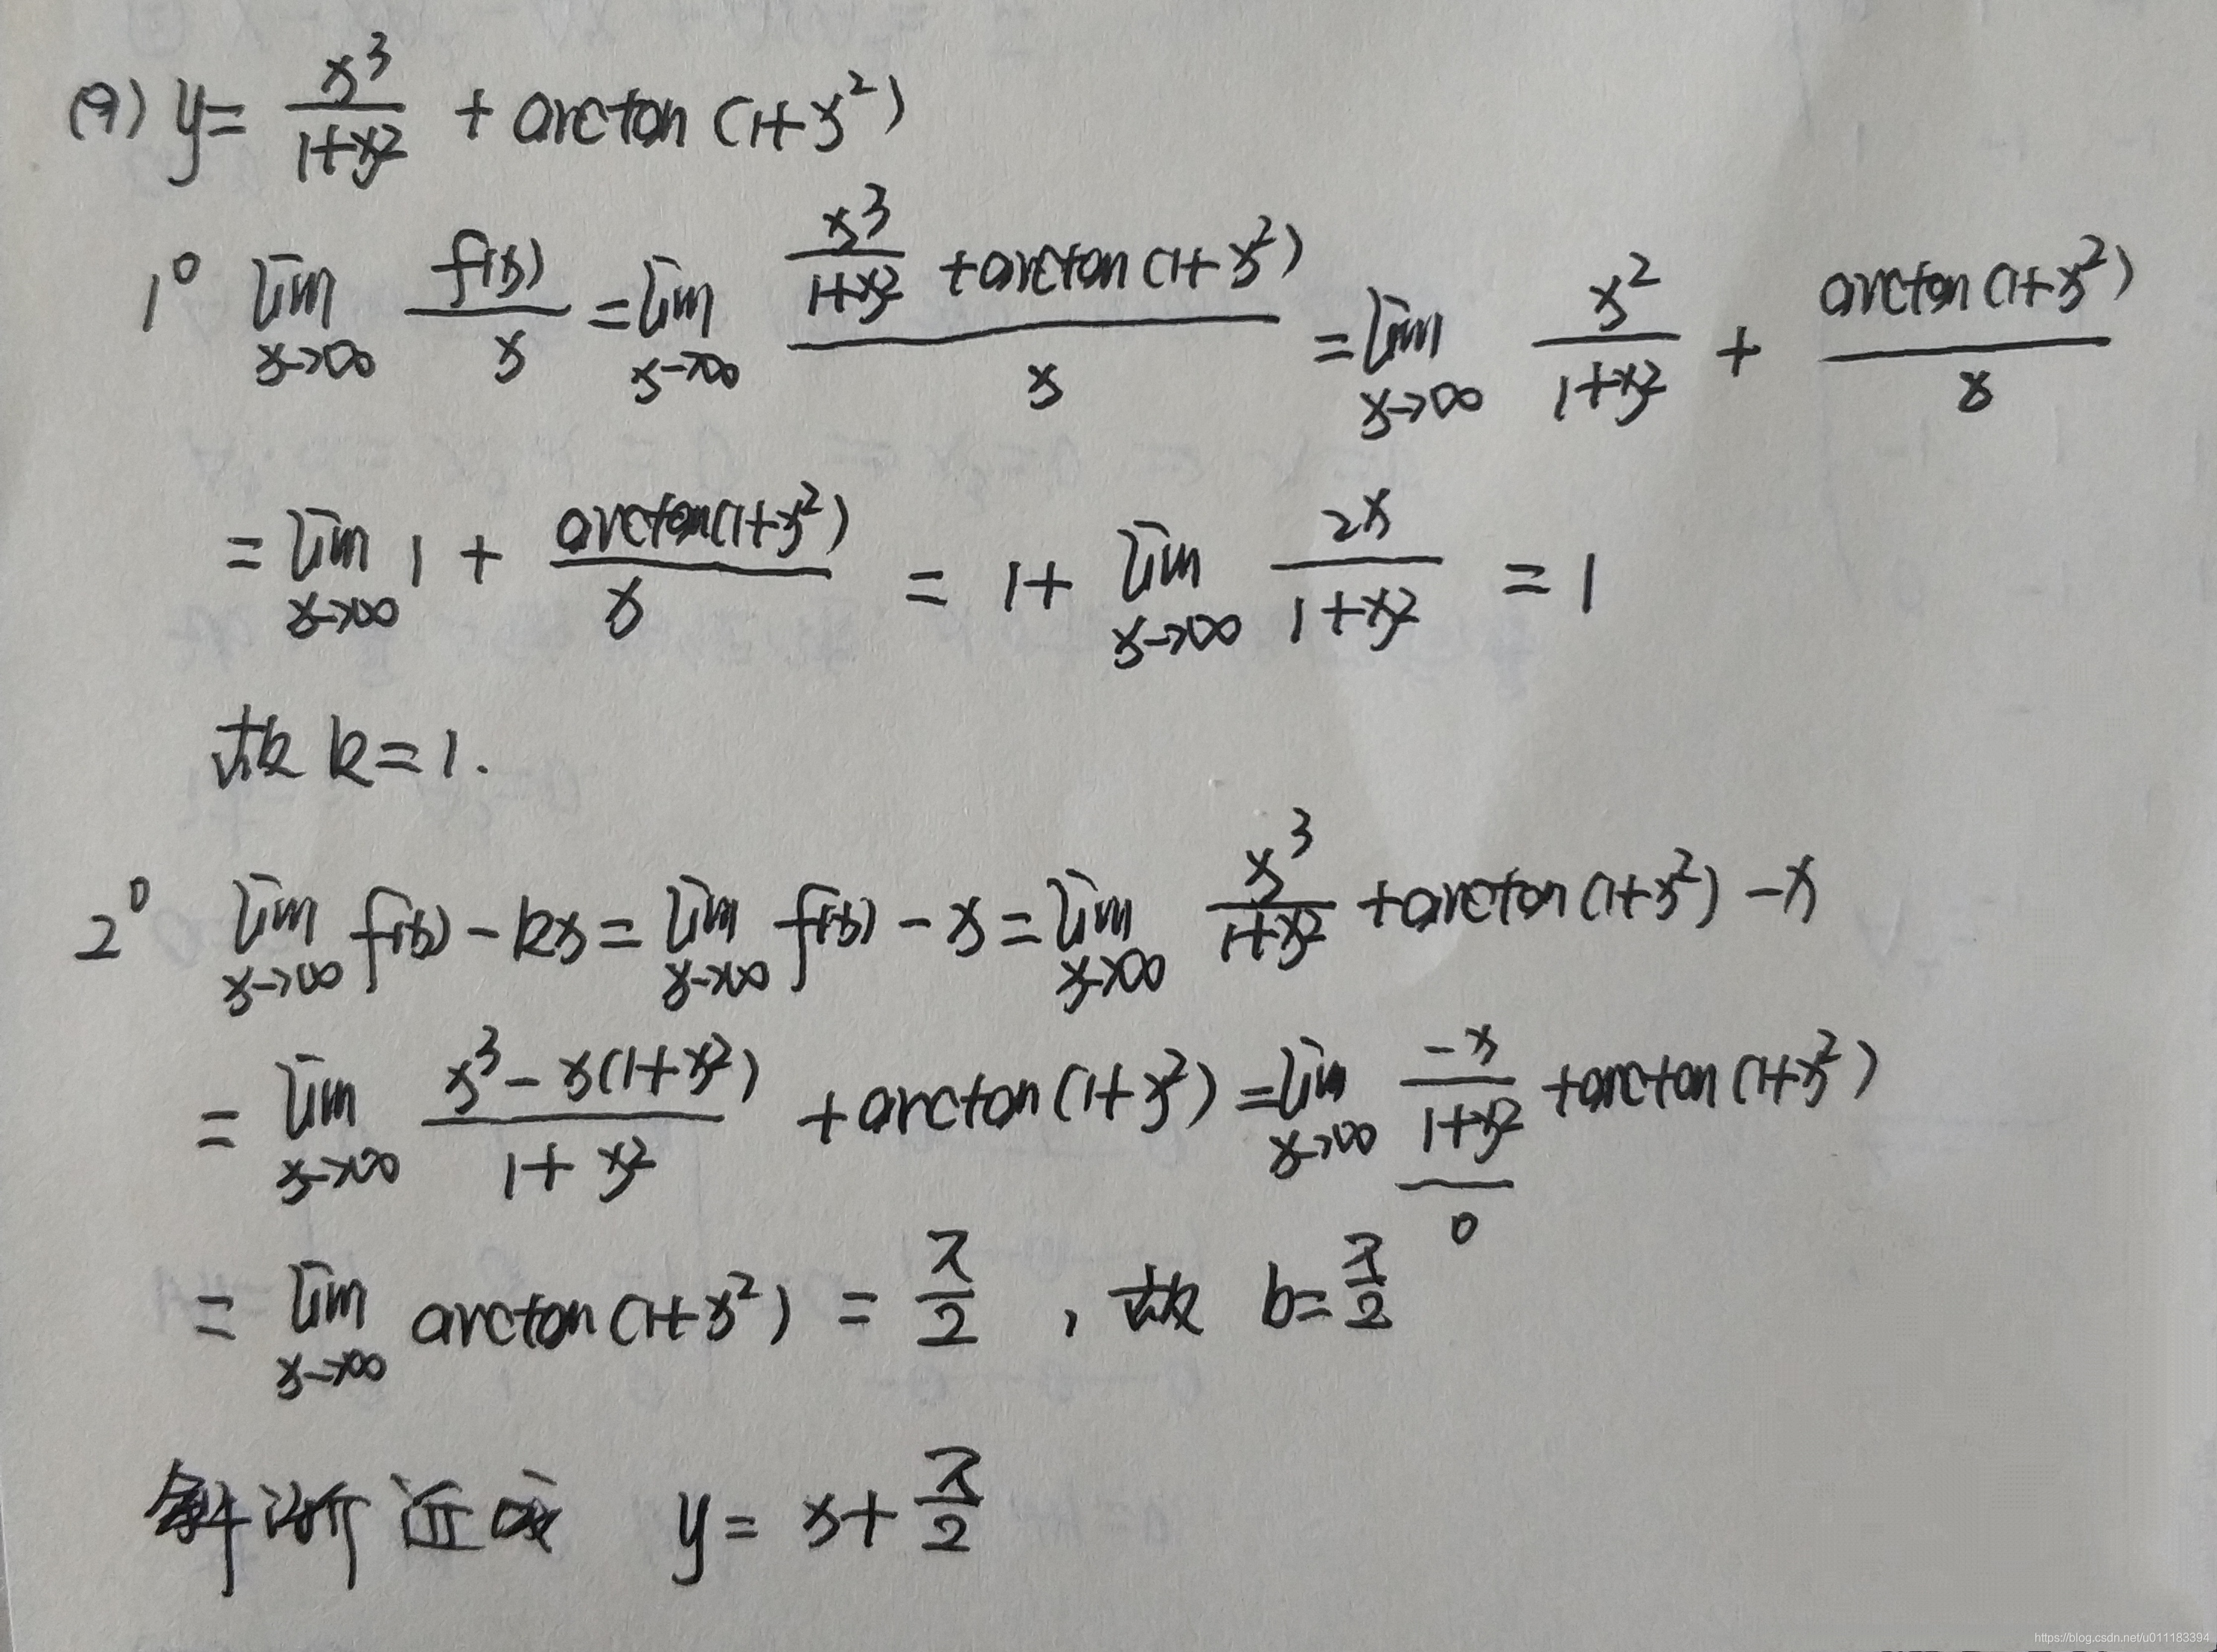 (9) y = x³/(1+x²) + arctan(1+x²)
1° lim_{x→∞} f(x)/x = lim_{x→∞} (x³/(1+x²) + arctan(1+x²))/x = lim_{x→∞} x²/(1+x²) + arctan(1+x²)/x
= lim_{x→∞} 1 + arctan(1+x²)/x = 1 + lim_{x→∞} 2x/(1+x²) = 1
故 k=1.
2° lim_{x→∞} f(x) - kx = lim_{x→∞} f(x) - x = lim_{x→∞} x³/(1+x²) + arctan(1+x²) - x
= lim_{x→∞} (x³ - x(1+x²))/(1+x²) + arctan(1+x²) = lim_{x→∞} -x/(1+x²) + arctan(1+x²)
0
= lim_{x→∞} arctan(1+x²) = π/2 , 故 b = π/2
斜渐近线 y = x + π/2
https://blog.csdn.net/u011183394